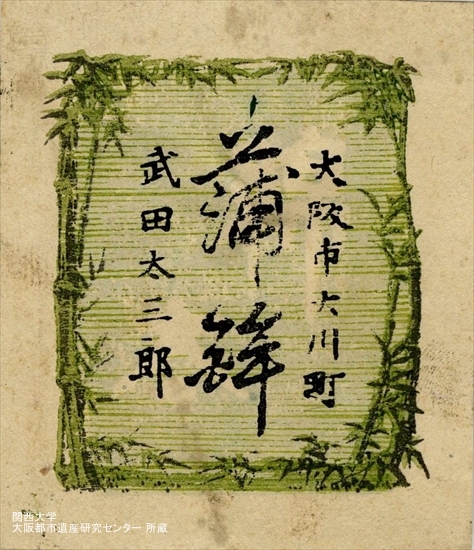 大阪市大川町
蒲鉾
武田太三郎
関西大学
大阪都市遺産研究センター 所蔵